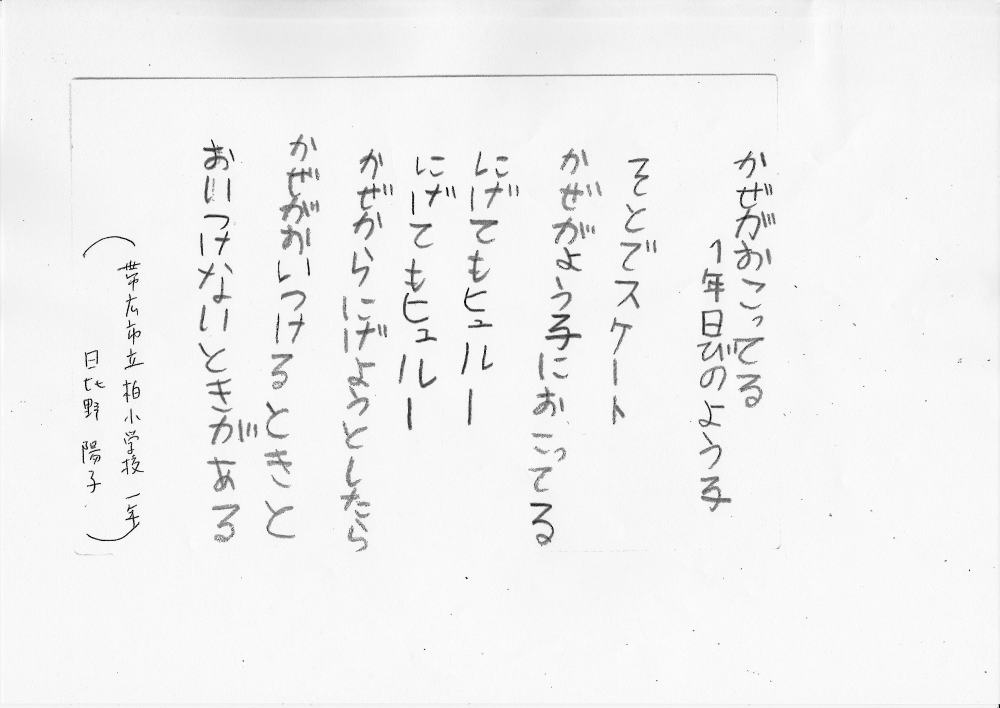 かぜがおこってる
1年日びのよう子
そとでスケート
かぜがよう子におこってる
にげてもヒュルー
にげてもヒュルー
かぜからにげようとしたら
かぜがおいつけるときと
おいつけないときがある
（帯広市立柏小学校 一年
日比野 陽子）